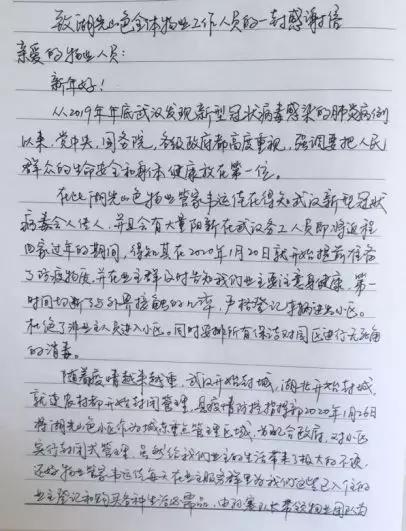 致湖光山色全体物业工作人员的一封感谢信
亲爱的物业人员:
新年好!
从2019年年底武汉发现新型冠状病毒感染的肺炎病例
以来,党中央,国务院,各级政府都高度重视,强调要把人民
群众的生命安全和身体健康放在第一位。
在此湖光山色物业管家韦运佳在得知武汉新型冠状
病毒会人传人,并且会有大量阳新在武汉务工人员即将返程
回家过年的期间,得知其在2020年1月20日就开始提前准备
了防疫物质,并在业主群及时告为我们业主要注意身健康,第一
时间切断了与外界接触的几率,严格登记车辆进出小区。
杜绝了非业主人员进入小区。同时安排所有保洁对园区进行无死角
的消毒。
随着疫情越来越重,武汉开始封城,湖北开始封城,
就连农村都开始封闭管理,县疫情防控指挥部2020年1月26日
将湖光山色小区作为城东重点管理区域,为配合政府,对小区
实行封闭式管理,虽然给我们业主的生活带来了极大的不便,
还好物业管家韦运佳每天在业主服务群里为我们这些已入住的
业主登记和购买各种生活必需品,由 队长带领物业团队为